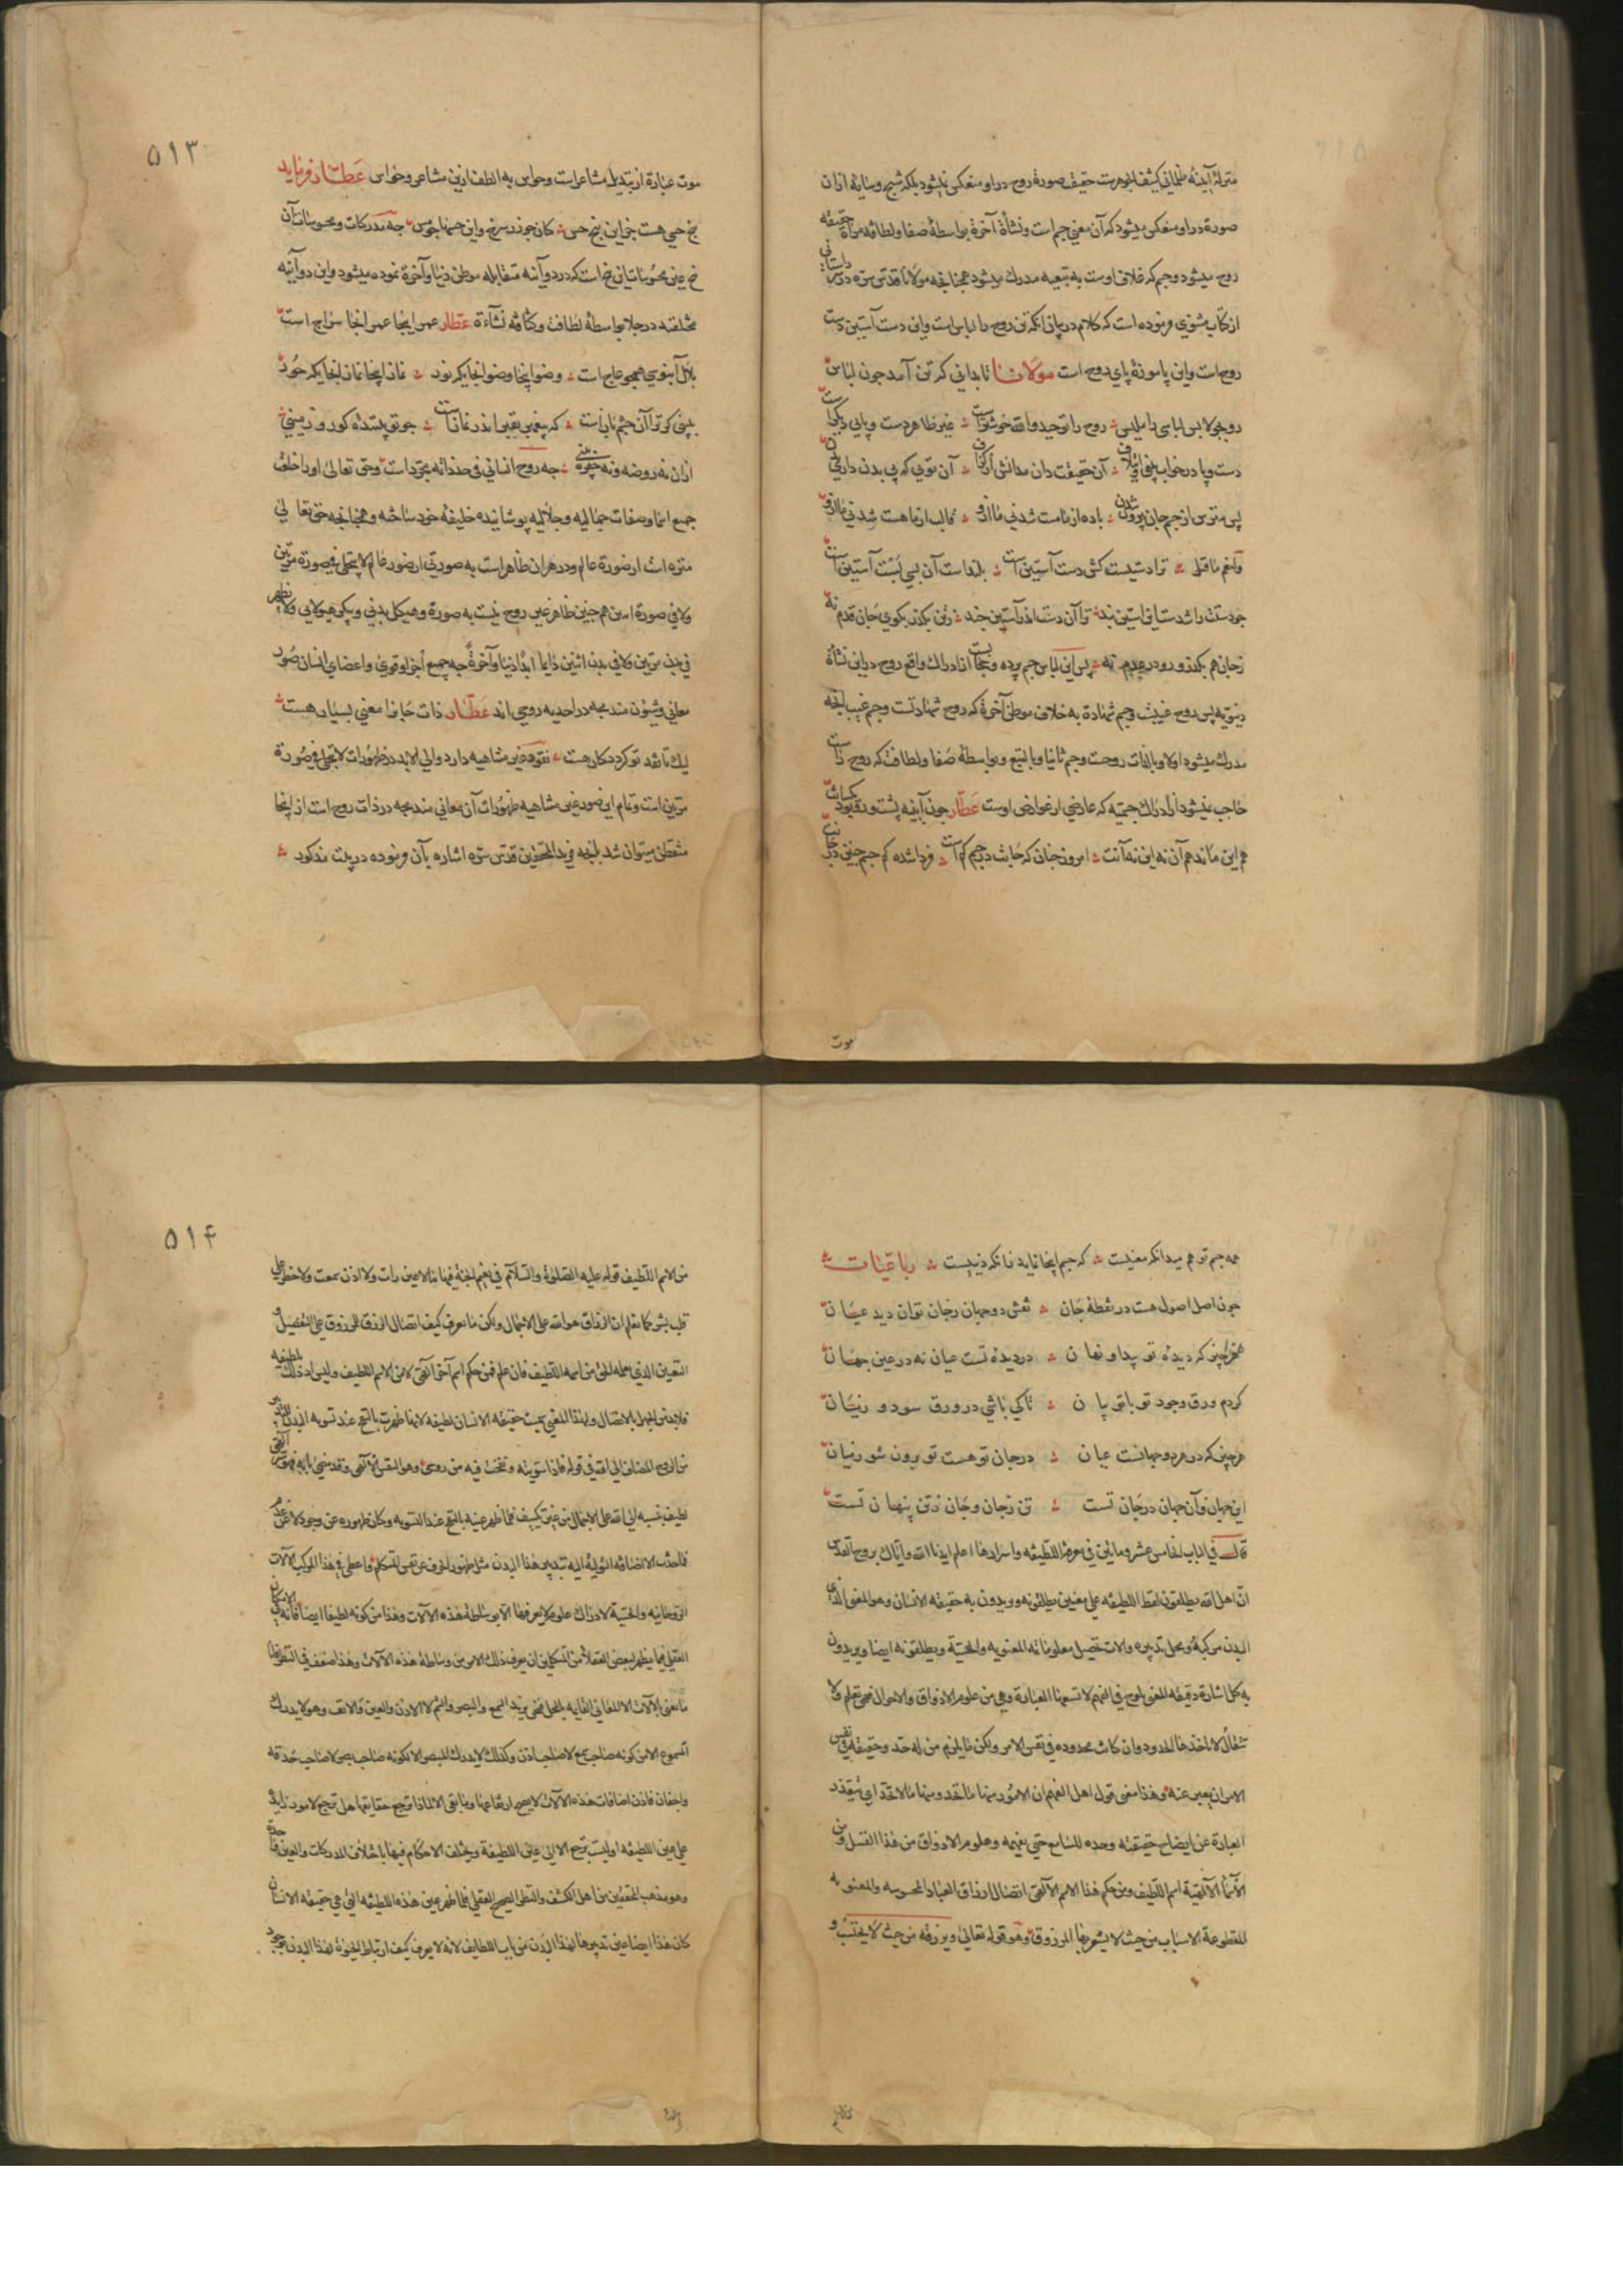 منزلهٔ آینهٔ ظلمانی کثیف الجوهرست حقیقت صورة روح در او منعکس نمیشود بلکه شبح و سایهٔ ازان
صورة در او منعکس میشود که آن معنی جسم است و نشأة آخرة بواسطهٔ صفا و لطافه مرآة حقیقه
روح میشود و جسم که غلاف اوست به تبعیه مدرك میشود همچنانچه مولانا قدس سره در داستانی
از کتاب مثنوی فرموده است که کلام در بیان انکه تن روح را لباس است و این دست آستین دست
روح است و این پا موزهٔ پای روح است مولانا تا بدانی که تن آمد چون لباس
رو بجو لابس لباسی را ملیس روح را توحید و الله خوشترست غیر ظاهر دست و پایی دیگرست
دست و پا در خواب بینی و ایتلاف آن حقیقت دان مدانش از گزاف آن تویی که بی بدن داری بدن
پس مترس از جسم جان بیرون شدن باده از ما مست شد نی ما ازو قالب از ما هست شد نی ما ازو
و لنعم ما قیل ترا دستیست کش دست آستین است بلند است آن بسی پست آستین است
چو دستت را شد دستان آستین بند ترا آن دست اندر آستین چند ز تن بگذر بکوی جان قدم نه
ز جان هم بگذر و رو در عدم نه پس این لباس جسم پرده و حجابیست از ادراك واقع روح در این نشأة
دنیویه پس روح غیبت و جسم شهادة به خلاف موطن آخرة که روح شهادتست و جسم غیب انچه
مدرك میشود اولا و بالذات روحست و جسم ثانیا و بالتبع و بواسطهٔ صفا و لطافت که روح راست
حاجب نمیشود از ادراك جسمیه که عارضی از عوارض اوست عطار چون آینه پشت و رو بود یکسانت
هم این ماند هم آن نه این نه آنت امروز چنان که جانت در جسم گم است فردا شده گم جسم چنین در جانت
موت
۵۱۳
موت عبارة از تبدیل مشاعر است و حواس به الطف ازین مشاعر و حواس عطار فرماید
پنج حسی هست جز این پنج حس کان چو زر سرخ و این حسها چو مس چه مدرکات و محسوسات آن
پنج عین محسوسات این پنج است که در دو آینه متقابله موطن دنیا و آخرة نموده میشود و این دو آینه
مختلفند در جلا بواسطهٔ لطافت و کثافه نشأءة عطار عمر اینجا عمر انجا سراج است
بلال آبنوسی همچو عاج است وضو اینجا وضو انجا یکی بود نماز اینجا نماز انجا یکی خود
ببینی گر ترا آن چشم باز است که پیغمبر بقبر اندر نماز است چو تو پیشنده کور و زمینی
ازان نه روضه و نه حفره بینی چه روح انسانی فی حد ذاته مجرد است و حق تعالی او را خلعت
جمیع اسما و صفات جمالیه و جلالیه پوشانیده خلیفهٔ خود ساخته و همچنانچه حق تعالی
منزه است از صورة عالم و در هر آن ظاهر است به صورتی از صور عالم لا یتجلی فی صورة مرتین
ولا فی صورة اسمین همچنین ظاهر عین روح نیست به صورة و هیکل بدنی و پیکر هیولانی ولا یظهر
فی بدن مرتین ولا فی بدن اثنین دائما ابدا دنیا و آخرة چه جمیع اجزا و قوی و اعضای انسان صور
معانی و شئون مندمجه در احدیه روحی اند عطار ذات جانرا معنی بسیار هست
لیك تا نقد تو گردد کار هست نقود غیر متناهیه دارد و الی الابد در ظهورات لا یتجلی فی صورة
مرتین است و تمام این صور غیر متناهیه ظهورات آن معانی مندمجه در ذات روح است از اینجا
متفطن میتوان شد بانچه فرید المحققین قدس سره اشاره بآن فرموده در بیت مذکور
همه جسم تو هم میدانکه معنیست که جسم اینجا نماید زانکه دنییست رباعیات
چون اصل اصول هست در نقطهٔ جان نقش دو جهان ز جان توان دید عیان
هر چیز که دیدهٔ تو پیدا و نهان در دیدهٔ تست عیان نه در عین جهان
کردم ورق وجود تو با تو بیان تا کی باشی در ورق سود و زیان
هر چیز که در هر دو جهانست عیان در جان تو هست تو برون شو ز میان
این جهان و آن جهان در جان تست تن ز جان و جان ز تن پنهان تست
قال فی الباب الخامس عشر و مایتین فی معرفة اللطیفه و اسرارها اعلم ایدنا الله و ایاك بروح القدس
ان اهل الله یطلقون لفظ اللطیفه علی معنیین یطلقونه و یریدون به حقیقه الانسان و هو المعنی الذی
البدن مرکبه و محل تدبیره و آلات تحصیل معلوماته المعنویه و الحسیة و یطلقونه ایضا و یریدون
به کل اشارة دقیقه المعنی یلوح فی الفهم لا تسعها العبارة و هی من علوم الاذواق و الاحوال فهی تعلم ولا
تنقال لا تاخذها الحدود و ان کانت محدوده فی نفس الامر ولکن ما یلزم من له حد و حقیقه فی نفس
الامر ان یعبر عنه و هذا معنی قول اهل الفهم ان الامور منها ما تحد و منها ما لا تحد ای یتعذر
العبارة عن ایضاح حقیقته وحده للسامع حتی یفهمه و علوم الاذواق من هذا القبیل و من
الاسماء الالهیة اسم اللطیف و من حکم هذا الاسم الالهی اتصال ارزاق العباد المحسوسه و المعنویه
المقطوعة الاسباب من حیث لا یشعر بها المرزوق و هو قوله تعالی و یرزقه من حیث لا یحتسب و
۵۱۴
من الاسم اللطیف قوله علیه الصلوة و السلام فی نعیم الجنة فیها ما لا عین رات ولا اذن سمعت ولا خطر علی
قلب بشر کما نعلم ان الرزاق هو الله علی الاجمال ولکن ما نعرف کیف اتصال الرزق للمرزوق علی التفصیل و
التعیین الذی یعلمه الحق من اسمه اللطیف فان علم فمن حکم اسم آخر الهی لا من الاسم اللطیف و لیس اذ ذلك بلطیفه
فلابد من الجهل بالاتصال و لهذا المعنی سمیت حقیقه الانسان لطیفه لانها ظهرت بالنفخ عند تسویه البدن للتدبیر
من الروح المضاف الی الله فی قوله فاذا سویته و نفخت فیه من روحی و هو النفس الالهی و قد مضی بابه فهو سر الهی
لطیف ینسب الی الله علی الاجمال من غیر تکییف فلما ظهر عینه بالنفخ عند التسویه و کان ظهوره عن وجود لا عن عدم
فما حدث الا اضافه التولیة الیه بتدبیر هذا البدن مثل ظهور الحرف عن نفس المتکلم و اعطی فی هذا المرکب الآلات
الروحانیه و الحسیة لادراك علوم لا یعرفها الا بوساطة هذه الآلات و هذا من کونه لطیفا ایضا فانه فی الامکان
العقلی فیما یظهر لبعض العقلاء من المتکلمین ان یعرف ذلك الامر من وساطة هذه الآلات و هذا ضعیف فی النظر فانا
ما نعنی بالآلات الا المعانی القایمه بالمحل فنحن نرید السمع و البصر و الشم لا الاذن و العین و الانف و هو لا یدرك
المسموع الا من کونه صاحب سمع لا صاحب اذن و کذلك لا یدرك المبصر الا لکونه صاحب بصر لا صاحب حدقه
و اجفان فاذن اضافات هذه الآلات لا یصح ارتفاعها و ما بقی الا لماذا ترجع حقایقها هل ترجع لامور زایدة
علی عین اللطیفه او لیست ترجع الا الی عین اللطیفة و یختلف الاحکام فیها باختلاف المدرکات و العین واحدة
و هو مذهب المحققین من اهل الکشف و النظر الصحیح العقلی فلما ظهر عین هذه اللطیفه التی هی حقیقه الانسان
کان هذا ایضا عین تدبیرها لهذا البدن من باب اللطایف لانه لا یعرف کیف ارتباط الحیوة لهذا البدن بوجود